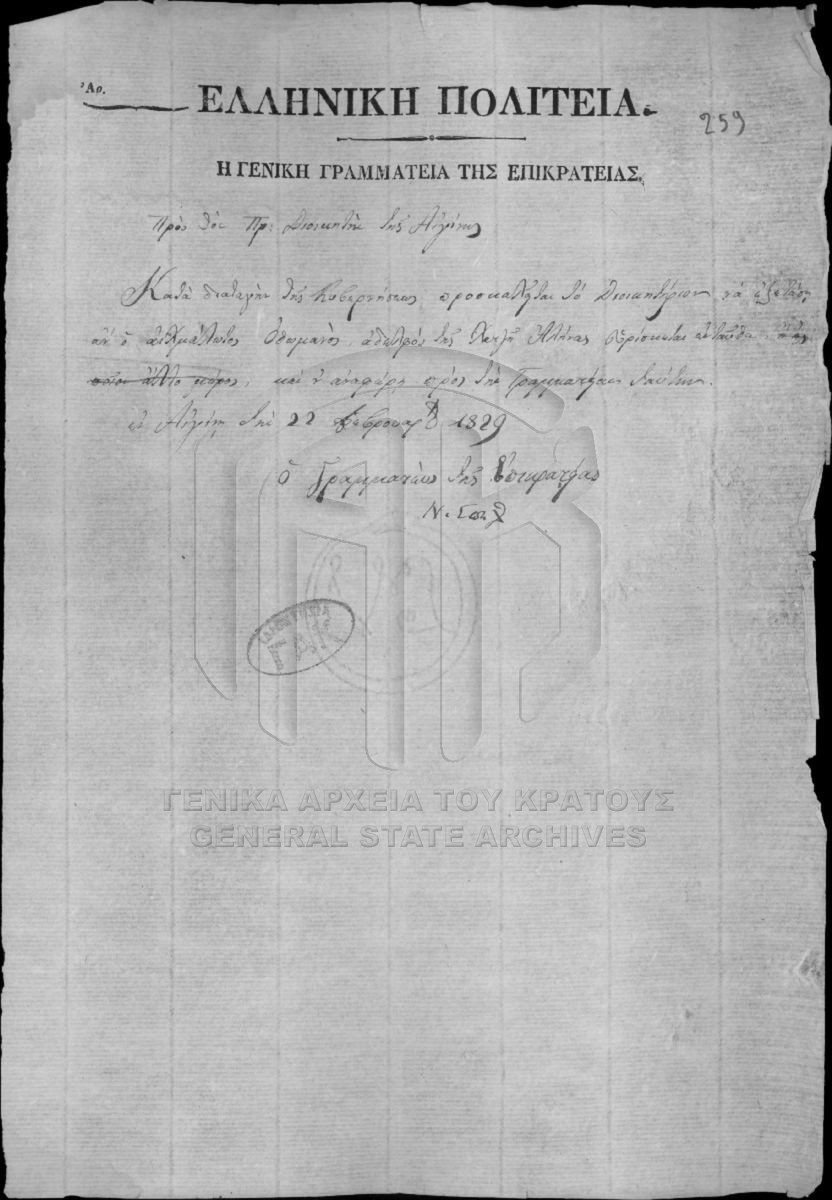 Ἀρ.
ΕΛΛΗΝΙΚΗ ΠΟΛΙΤΕΙΑ.
259
Η ΓΕΝΙΚΗ ΓΡΑΜΜΑΤΕΙΑ ΤΗΣ ΕΠΙΚΡΑΤΕΙΑΣ.
Πρὸς τὸν Πρ: Διοικητὴν τῆς Αἰγίνης
Κατὰ διαταγὴν τῆς Κυβερνήσεως προσκαλεῖται τὸ Διοικητήριον νὰ ἐξετάσῃ
ἂν ὁ αἰχμάλωτος Ὀθωμανὸς, ἀδελφὸς τῆς Χατζῆ εὑρίσκεται ἐνταῦθα,
ἄλλο μέρος, καὶ ν' ἀναφέρῃ πρὸς τὴν Γραμματείαν ταύτην.
ἐν Αἰγίνῃ τὴν 22 Φεβρουαρ 1829
ὁ Γραμματεὺς τῆς Ἐπικρατείας
Ν. Σπη
ΓΕΝΙΚΑ ΑΡΧΕΙΑ ΤΟΥ ΚΡΑΤΟΥΣ
GENERAL STATE ARCHIVES